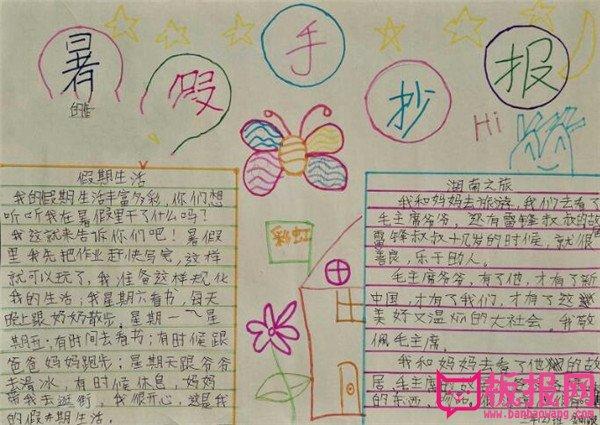 暑假手抄报
Hi
假期生活
我的假期生活丰富多彩,你们想
听听我在暑假里干了什么吗?
我这就来告诉你们吧!暑假
里我先把作业赶快写完,这样
就可以玩了,我准备这样规化
我的生活:我星期六看书,每天
晚上跟奶奶散步,星期一~星
期五:有时间去看书;有时候跟
爸爸妈妈跑步;星期天跟爷爷
去滑冰,有时候休息,妈妈
带我去逛街,我很开心,这是我
的假期生活。
彩虹
湖南之旅
我和妈妈去旅游,我们去看了
毛主席爷爷,还有雷锋叔叔的故
雷锋叔叔十几岁的时候,就很
善良,乐于助人。
毛主席爷爷,有了他,才有了新
中国,才有了我们,才有了这
美好又温的大社会,我敬
佩毛主席
我和妈妈去看了他的故
居,毛主席
的东西,
板报网
www.banbaowang.com